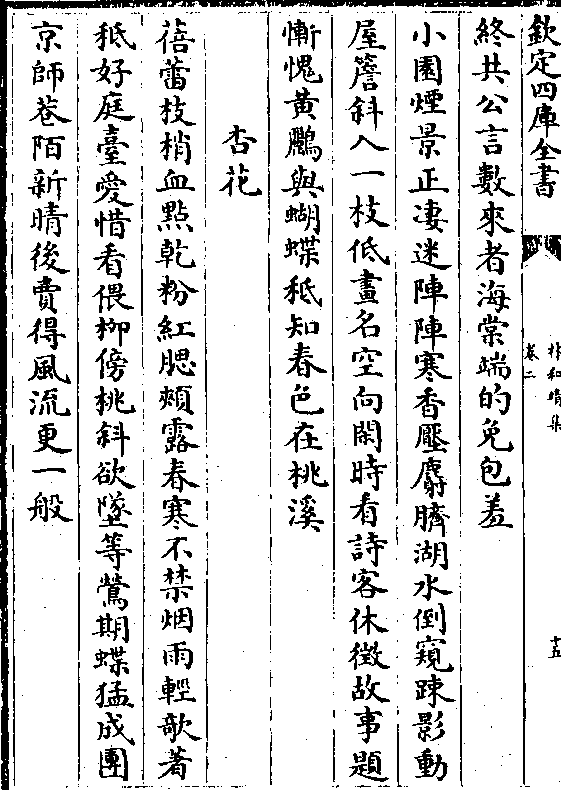 欽定四庫全書
林和靖集
卷二
十五
終共公言數來者海棠端的免包羞
小園煙景正淒迷陣陣寒香壓麝臍湖水倒窺踈影動
屋簷斜入一枝低畫名空向閑時看詩客休徵故事題
慚愧黃鸝與蝴蝶秪知春色在桃溪
杏花
蓓蕾枝梢血點乾粉紅腮頰露春寒不禁烟雨輕欹著
秪好庭臺愛惜看偎栁傍桃斜欲墜等鶯期蝶猛成團
京師巷陌新晴後賣得風流更一般